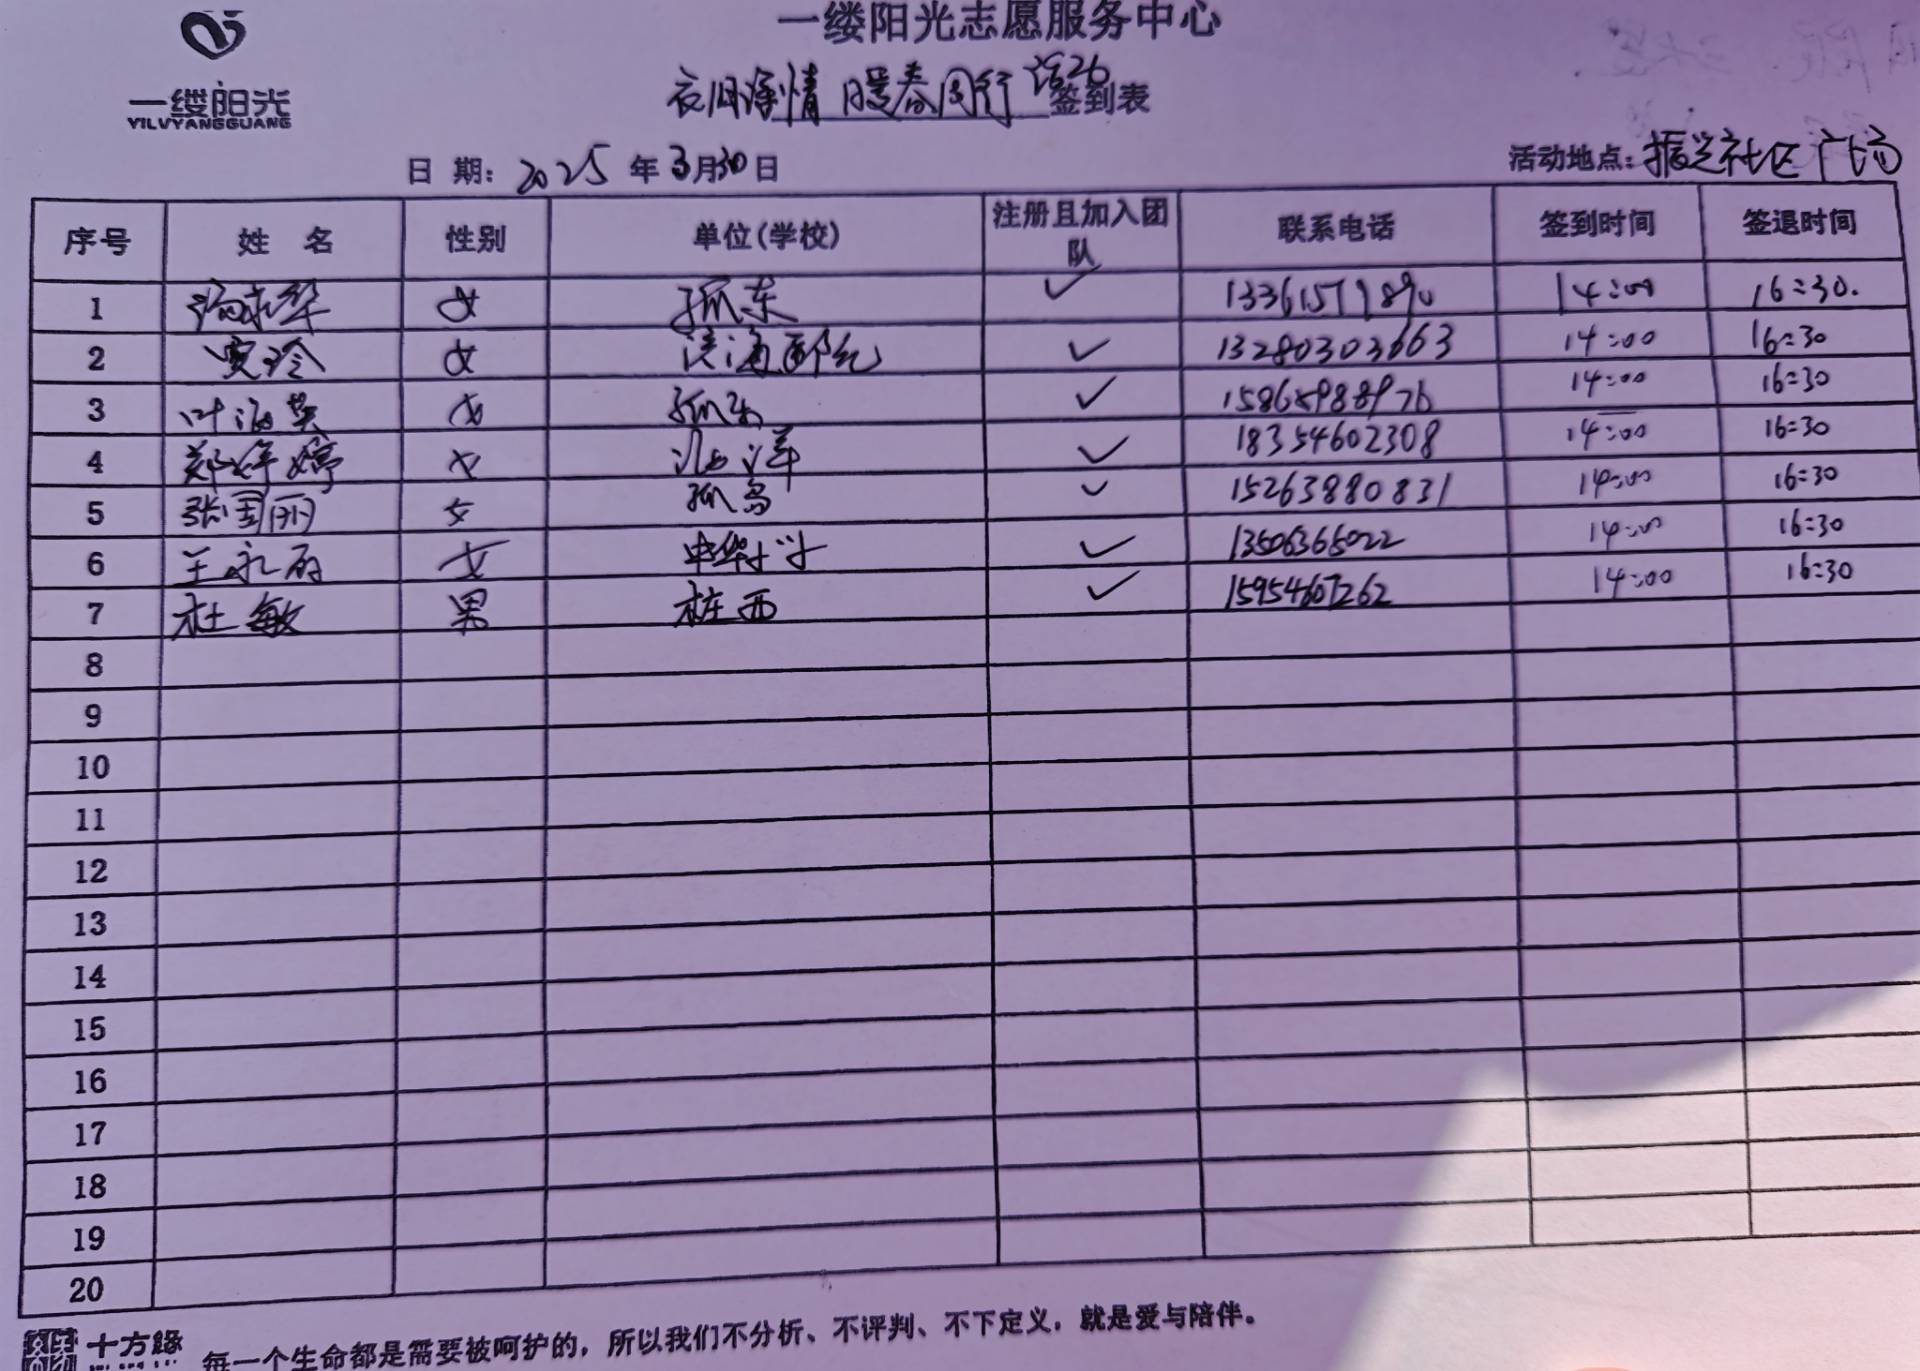 一缕阳光志愿服务中心
一缕阳光
YILVYANGGUANG
衣旧深情 暖春同行 活动 签到表
日 期: 2025 年 3月30日 活动地点: 振兴社区广场
序号 姓 名 性别 单位(学校) 注册且加入团队 联系电话 签到时间 签退时间
1 女 孤东 ✓ 14:00 16:30.
2 贾玲 女 滨海 ✓ 13280303663 14:00 16:30
3 叶海英 女 孤东 ✓ 15865988976 14:00 16:30
4 郑婷婷 女 海洋 ✓ 18354602308 14:00 16:30
5 张国丽 女 孤岛 ✓ 15263880831 14:00 16:30
6 王永丽 女 中华小学 ✓ 13506365022 14:00 16:30
7 杜敏 男 桩西 ✓ 15954607262 14:00 16:30
8
9
10
11
12
13
14
15
16
17
18
19
20
十方缘 每一个生命都是需要被呵护的，所以我们不分析、不评判、不下定义，就是爱与陪伴。